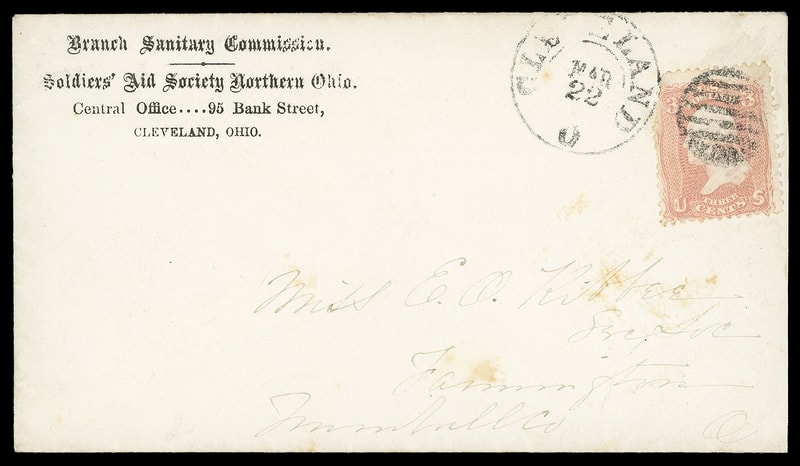 Branch Sanitary Commission.
Soldiers' Aid Society Northern Ohio.
Central Office....95 Bank Street,
CLEVELAND, OHIO.
CLEVELAND
MAR
22
O
3 3
U THREE S
CENTS
Miss E. O. Kibbee
Sec, Soc
Farmington
Trumbull Co O